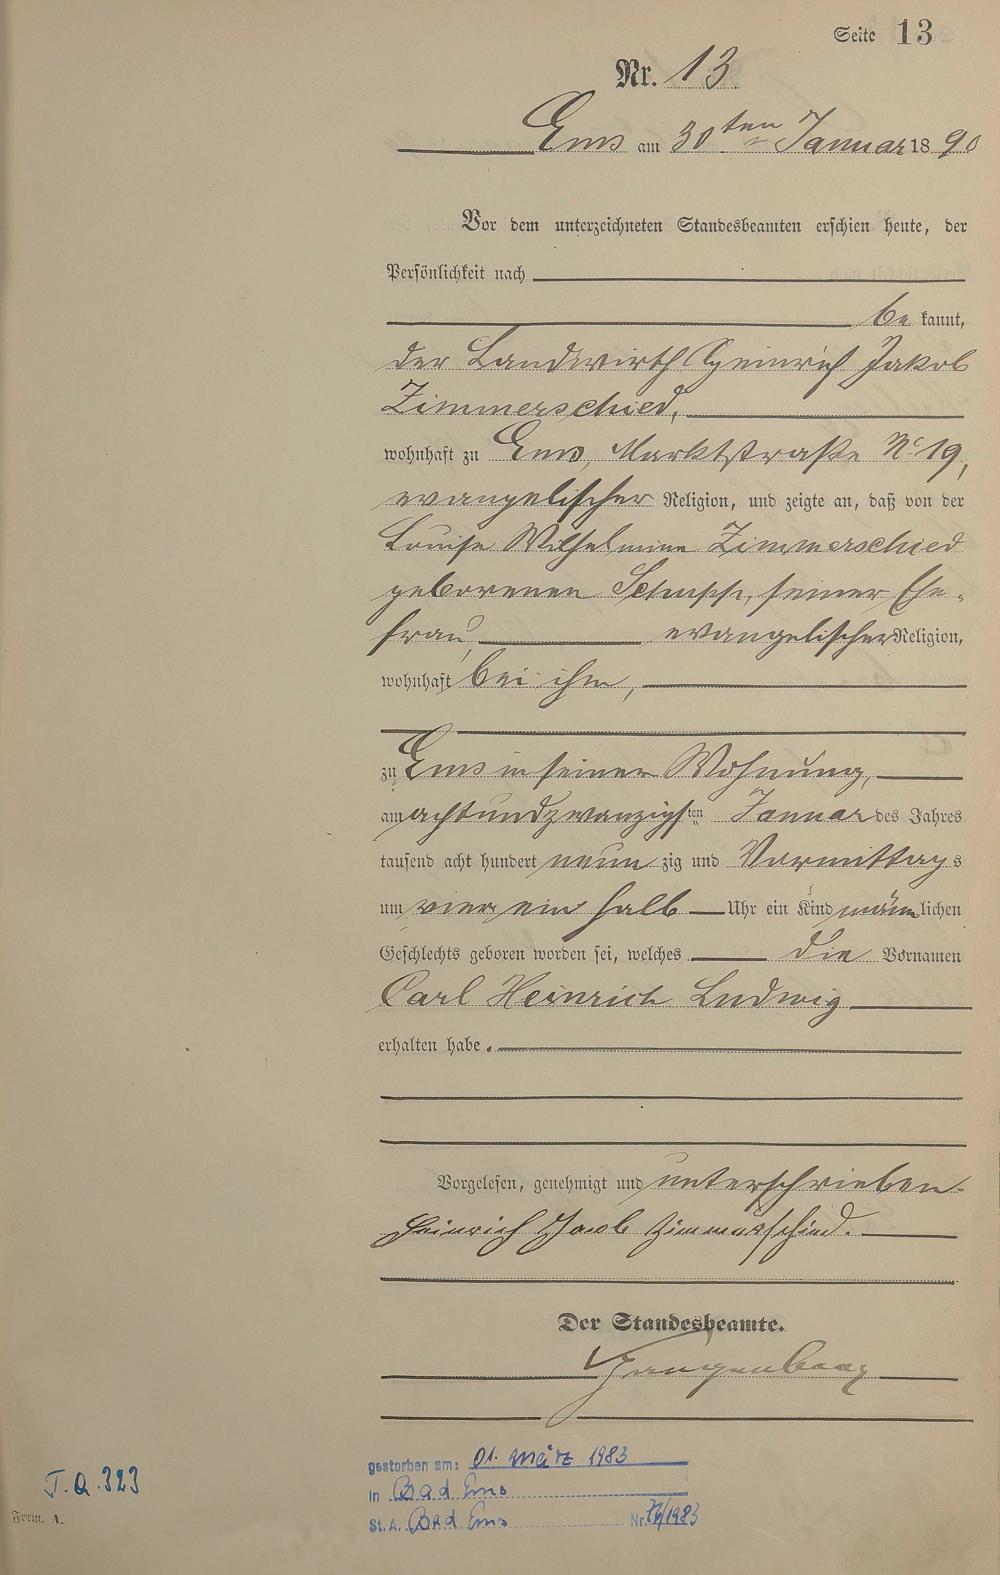 Seite 13
Nr. 13
Ems am 30ten Januar 1890
Vor dem unterzeichneten Standesbeamten erschien heute, der
Persönlichkeit nach
bekannt,
der Landwirth Heinrich Jakob
Zimmerschied,
wohnhaft zu Ems, Marktstraße No 19,
evangelischer Religion, und zeigte an, daß von der
Louise Wilhelmine Zimmerschied
geborenen Schupp, seiner Ehe-
frau, evangelischer Religion,
wohnhaft bei ihm,
zu Ems in seiner Wohnung,
am achtundzwanzigsten Januar des Jahres
tausend acht hundert neunzig und Vormittags
um vier ein halb Uhr ein Kind männlichen
Geschlechts geboren worden sei, welches die Vornamen
Carl Heinrich Ludwig
erhalten habe.
Vorgelesen, genehmigt und unterschrieben
Heinrich Jacob Zimmerschied.
Der Standesbeamte.
gestorben am: 01. März 1983
in Bad Ems
St. A. Bad Ems Nr. 76/1983
T.Q.323
Form. A.